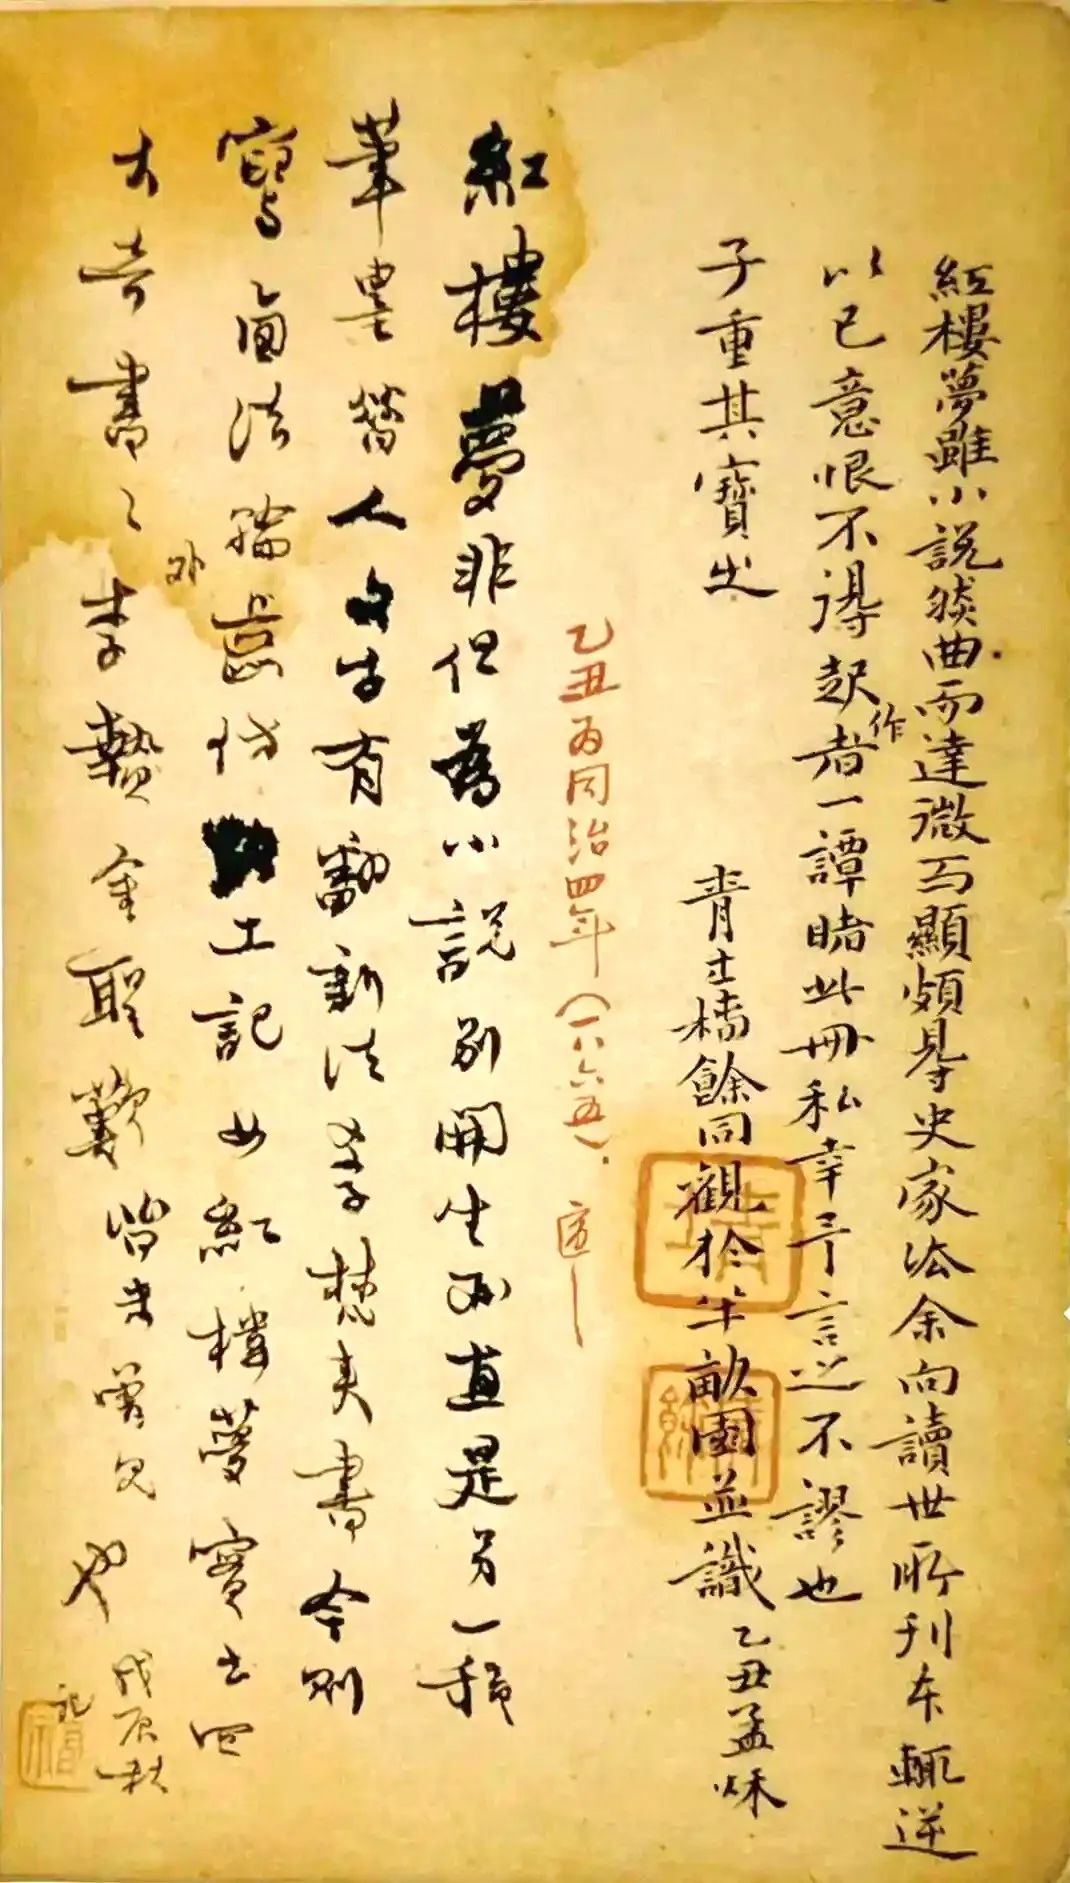 紅樓夢雖小說然曲而達微而顯頗得史家法余向讀世所刊本輒逆
以己意恨不得起作者一譚睹此冊私幸予言之不謬也
子重其寶之
青士椿餘同觀於半畝園並識乙丑孟秋
乙丑為同治四年(一八六五). 適
紅樓夢非但為小說別開生面直是另一種
筆墨昔人文字有翻新法學梵夾書今則
寫西法輪齒仿工記如紅樓夢實出四
大奇書之外李贄金聖歎皆未曾見也戊辰秋
記